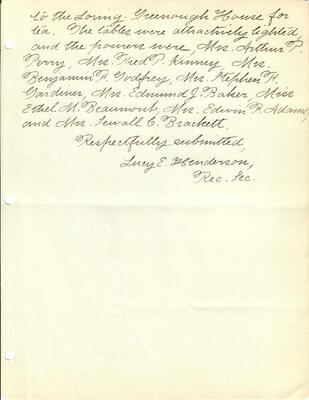 to the Loring-Greenough House for
tea. The tables were attractively lighted,
and the pourers were, Mrs. Arthur P.
Perry, Mrs. Fred P. Kinney, Mrs.
Benjamin F. Godfrey, Mrs. Stephen F.
Gardiner, Mrs. Edmund J. Baker, Miss
Ethel M. Beaumont, Mrs. Edwin F. Adams,
and Mrs. Sewall C. Brackett.
Respectfully submitted,
Lucy E. Henderson,
Rec. Sec.